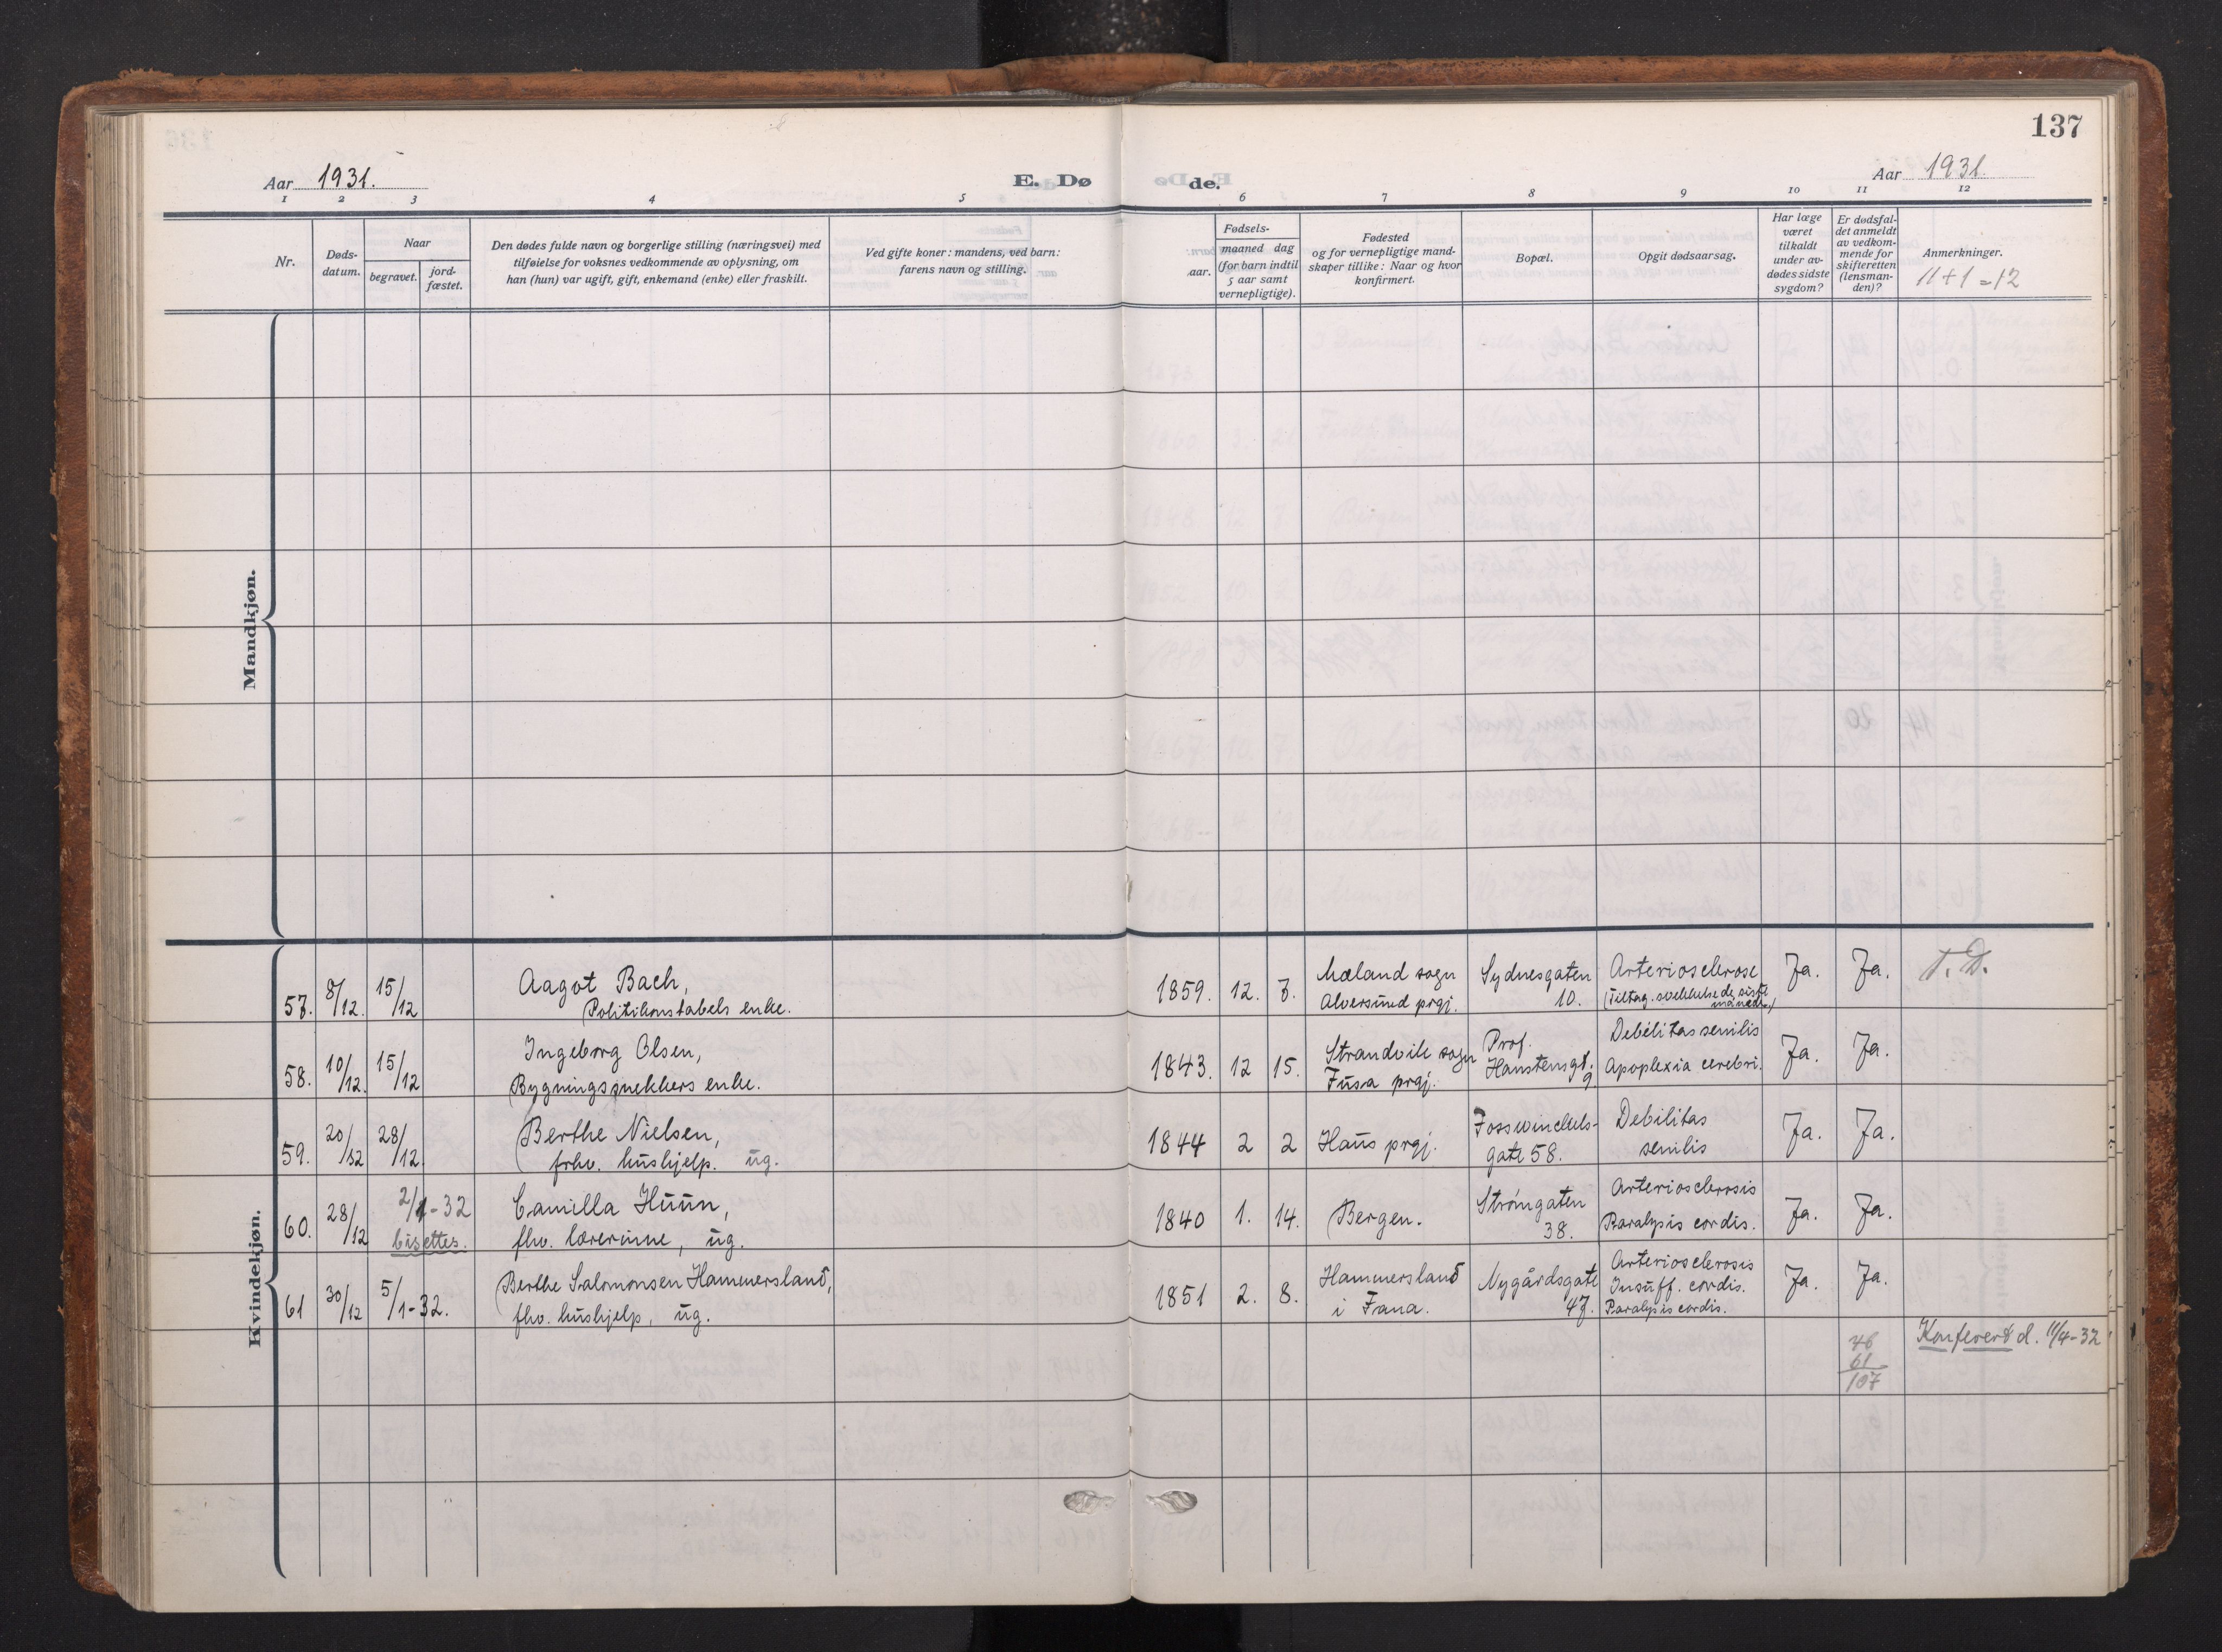 137
Aar 1931.
E. Døde.
Aar 1931.
1 2 3 4 5 6 7 8 9 10 11 12
Nr.
Døds-
datum.
Naar
begravet.
jord-
fæstet.
Den dødes fulde navn og borgerlige stilling (næringsvei) med
tilføielse for voksnes vedkommende av oplysning, om
han (hun) var ugift, gift, enkemand (enke) eller fraskilt.
Ved gifte koner: mandens, ved barn:
farens navn og stilling.
Fødsels-
aar.
maaned dag
(for barn indtil
5 aar samt
vernepligtige).
Fødested
og for vernepligtige mand-
skaper tillike: Naar og hvor
konfirmert.
Bopæl.
Opgit dødsaarsag.
Har læge
været
tilkaldt
under av-
dødes sidste
sygdom?
Er dødsfal-
det anmeldt
av vedkom-
mende for
skifteretten
(lensman-
den)?
Anmerkninger.
11+1=12
Mandkjøn.
Kvindekjøn.
57. 8/12. 15/12 Aagot Bach, 1859. 12. 7. Mæland sogn Sydnesgaten Arteriosclerose Ja. Ja. T. D.
Politikonstabels enke. Alversund prgj. 10. (Tiltag. svekkelse de siste
måneder)
58. 10/12. 15/12 Ingeborg Olsen, 1843. 12 15. Strandvik sogn Prof. Debilitas senilis Ja. Ja.
Bygningssnekkers enke. Fusa prgj. Hanstensgt. 9 Apoplexia cerebri.
59. 20/12 28/12. Berthe Nielsen, 1844 2 2 Haus prgj. Fosswinckels- Debilitas Ja. Ja.
frhv. hushjelp. ug. gate 58. senilis
60. 28/12 2/1-32 Camilla Huun, 1840 1. 14. Bergen. Strømgaten Arteriosclerosis Ja. Ja.
bisettes. fhv. lærerinne, ug. 38. Paralysis cordis.
61 30/12 5/1-32. Berthe Salomonsen Hammersland, 1851 2. 8. Hammersland Nygårdsgate Arteriosclerosis Ja. Ja.
fhv. hushjelp, ug. i Fana. 47. Insuff. cordis.
Paralysis cordis.
46
61
107
Konferert d. 11/4-32